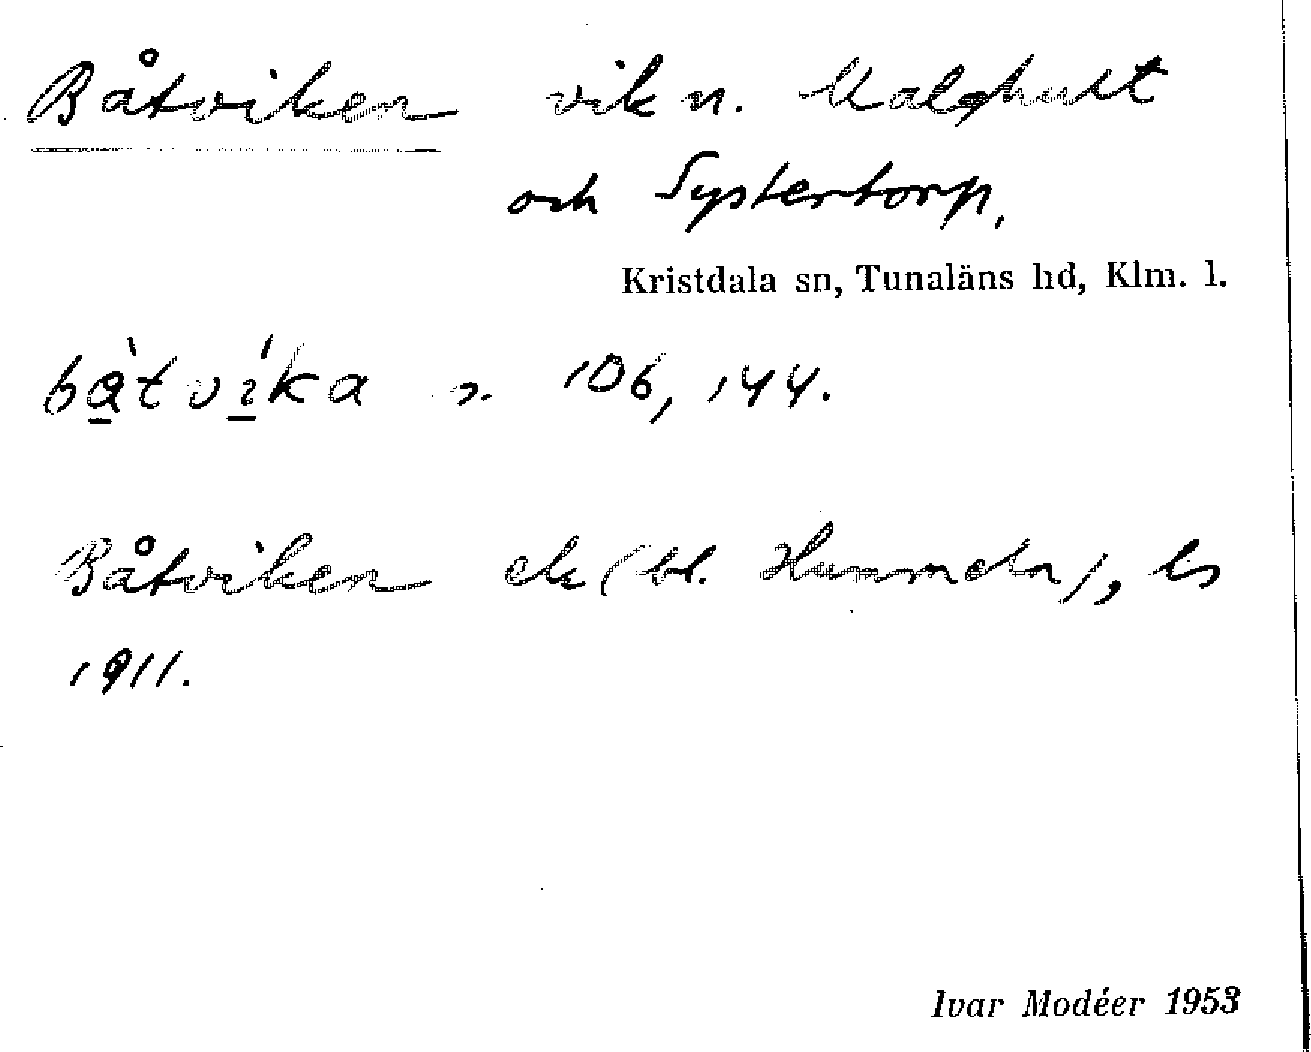 Båtviken vik n. Malghult
och Systertorp.
Kristdala sn, Tunaläns hd, Klm. l.
båtvika s. 106, 144.
Båtviken ek (bl. Hummeln), ls
1911.
Ivar Modéer 1953